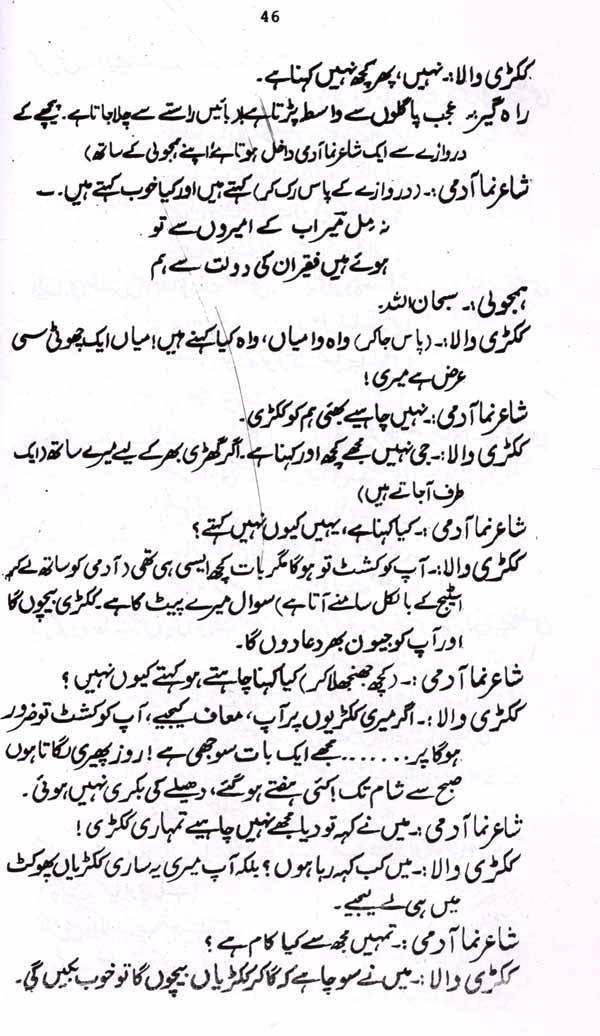 46
ککڑی والا:۔ نہیں، پھر کچھ نہیں کہنا ہے۔
راہ گیر:۔ عجب پاگلوں سے واسطہ پڑتا ہے (بائیں راستے سے چلا جاتا ہے۔ پیچھے کے
دروازے سے ایک شاعر نما آدمی داخل ہوتا ہے اپنے ہمجولی کے ساتھ)
شاعر نما آدمی:۔ (دروازے کے پاس رک کر) کہتے ہیں اور کیا خوب کہتے ہیں۔۔
نہ مل میر اب کے امیروں سے تو
ہوئے ہیں فقیر ان کی دولت سے ہم
ہمجولی:۔ سبحان اللہ۔
ککڑی والا:۔ (پاس جاکر) واہ وا میاں، واہ کیا کہنے ہیں! میاں ایک چھوٹی سی
عرض ہے میری!
شاعر نما آدمی:۔ نہیں چاہیے بھئی ہم کو ککڑی۔
ککڑی والا:۔ جی نہیں مجھے کچھ اور کہنا ہے۔ اگر گھڑی بھر کے لیے میرے ساتھ (ایک
طرف آجاتے ہیں)
شاعر نما آدمی:۔ کیا کہنا ہے، یہیں کیوں نہیں کہتے؟
ککڑی والا:۔ آپ کو کشٹ تو ہوگا مگر بات کچھ ایسی ہی تھی (آدمی کو ساتھ لے کر
اسٹیج کے بالکل سامنے آتا ہے) سوال میرے پیٹ کا ہے۔ ککڑی بیچوں گا
اور آپ کو جیون بھر دعا دوں گا۔
شاعر نما آدمی:۔ (کچھ جھنجھلا کر) کیا کہنا چاہتے ہو کہتے کیوں نہیں؟
ککڑی والا:۔ اگر میری ککڑیوں پر آپ، معاف کیجیے، آپ کو کشٹ تو ضرور
ہوگا پر....... مجھے ایک بات سوجھی ہے! روز پھیری لگاتا ہوں
صبح سے شام تک! کئی ہفتے ہوگئے، دھیلے کی بکری نہیں ہوئی۔
شاعر نما آدمی:۔ میں نے کہہ تو دیا مجھے نہیں چاہیے تمہاری ککڑی!
ککڑی والا:۔ میں کب کہہ رہا ہوں؟ بلکہ آپ میری یہ ساری ککڑیاں پھوکٹ
میں ہی لے لیجیے۔
شاعر نما آدمی:۔ تمہیں مجھ سے کیا کام ہے؟
ککڑی والا:۔ میں نے سوچا ہے کہ گا کر ککڑیاں بیچوں گا تو خوب بکیں گی۔